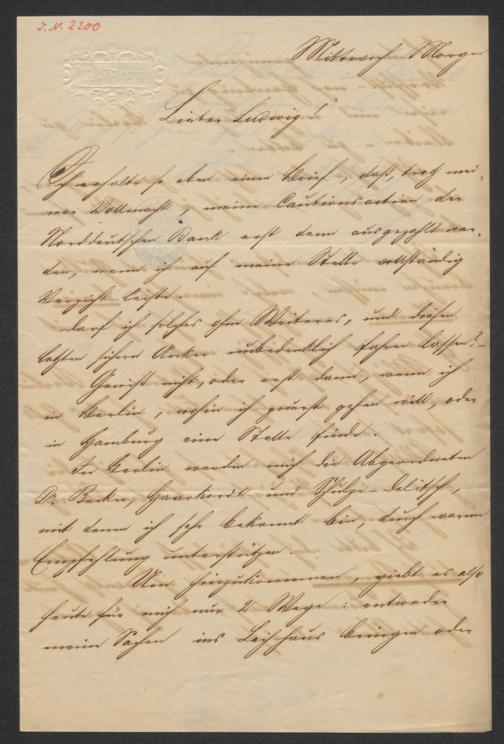 J. N. 2200
Mittwoch Morgen
Lieber Ludwig!
Ich erhalte so eben einen Brief, daß, trotz mei-
ner Vollmacht, meine Cautionsactien der
Norddeutschen Bank erst dann ausgezahlt wer-
den, wenn ich auf meine Stelle vollständig
Verzicht leiste.
Darf ich solches ohne Weiteres, und diesen
letzten sichern Anker unbedenklich fahren lassen? –
Gewiß nicht, oder erst dann, wenn ich
in Berlin, wohin ich zuerst gehen will, oder
in Hamburg eine Stelle finde.
In Berlin werden mich die Abgeordneten
Dr. Becker, Harckordt und Schulze-Delitsch,
mit denen ich sehr bekannt bin, durch warme
Empfehlung unterstützen.
Um hinzukommen, giebt es also
heute für mich nur 2 Wege: entweder
meine Sachen ins Leihhaus bringen oder